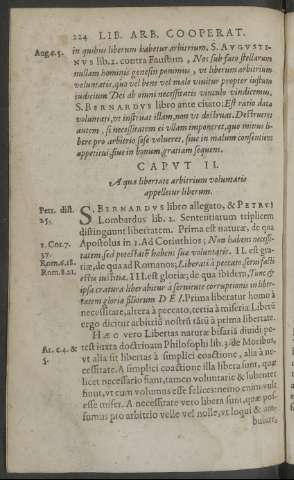 224 LIB. ARB. COOPERAT.
Aug.c.5. in quibus liberum habetur arbitrium. S. AUGUSTI-
NUS lib. 2. contra Faustum, Nos sub fato stellarum
nullam hominis genesin ponimus, ut liberum arbitrium
voluntatis, quo vel bene vel male vivitur propter iustum
iudicium Dei ab omni necessitatis vinculo vindicemus,
S. BERNARDUS libro ante citato: Est ratio data
voluntati, ut instruat illam, non ut destruat. Destrueret
autem, si necessitatem ei ullam imponeret, quo minus li-
bere pro arbitrio sese volueret, sive in malum consentiens
appetitui, sive in bonum, gratiam sequens.
CAPUT II.
A qua libertate arbitrium voluntatis
appelletur liberum.
Petr. dist. S. BERNARDUS libro allegato, & PETRUS
25. Lombardus lib. 2. Sententiarum triplicem
distinguunt libertatem. Prima est naturæ, de qua
1. Cor. 7. Apostolus in 1. Ad Corinthios; Non habens necessi-
37. tatem sed potestatē habens suæ voluntatis. II. est gra-
Rom.6.18. tiæ, de qua ad Romanos; Liberati à peccato, servi facti
Rom.8.21. estis iustitiæ. III. est gloriæ; de qua ibidem, Tunc &
ipsa creatura liberabitur à servitute corruptionis in liber-
tatem gloriæ filiorum DEI. Prima liberatur homo à
necessitate, altera à peccato, tertia à miseria. Liberū
ergo dicitur arbitriū nostrū tātū à prima libertate.
Hæc vero Libertas naturæ bifariā dividi po-
Ar. c. 4. & test iuxta doctrinam Philosophi lib. 3. de Moribus,
5. ut alia sit libertas à simplici coactione, alia à ne-
cessitate. A simplici coactione illa libera sunt, quæ
licet necessario fiant, tamen voluntarie & lubenter
fiunt, ut cum volumus esse felices: nemo enim vult
esse miser. A necessitate vero libera sunt, quæ pos-
sumus pro arbitrio velle vel nolle, ut loqui & am-
bulare,